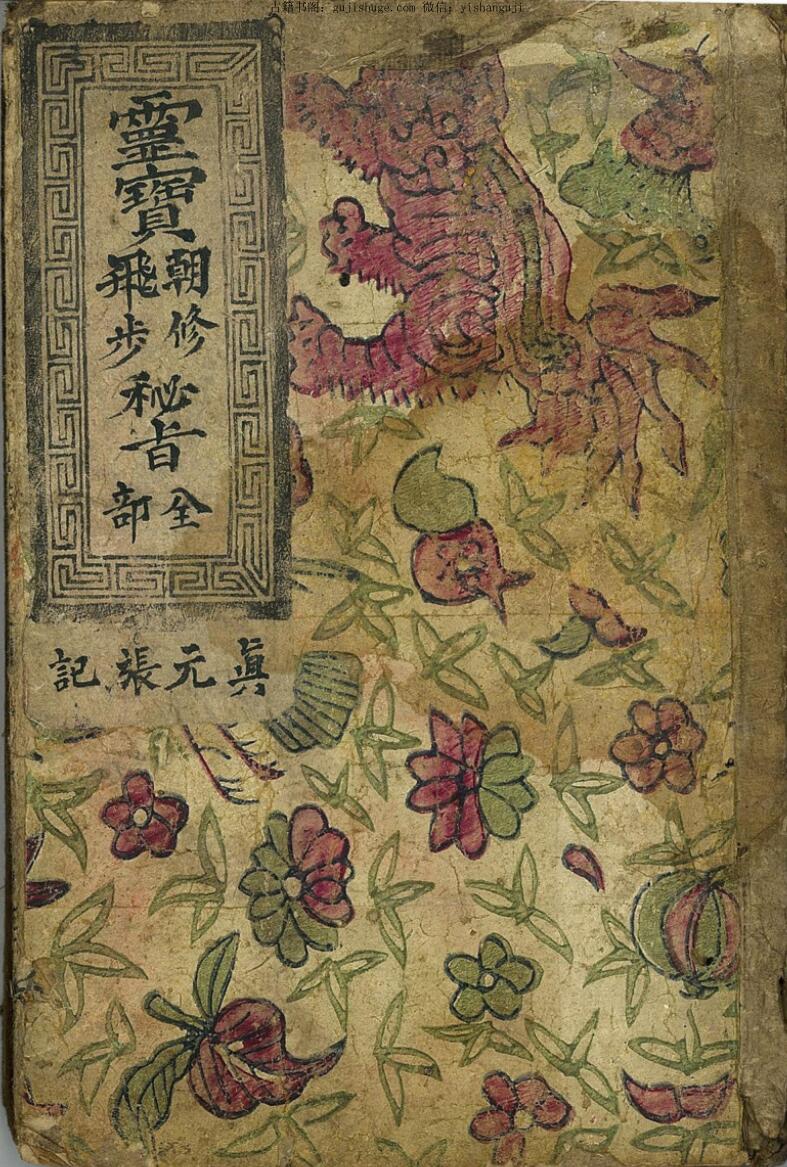 古籍书阁：gujishuge.com 微信：yishanguji
靈寶
朝修
飛步
秘旨
全
部
眞元張記